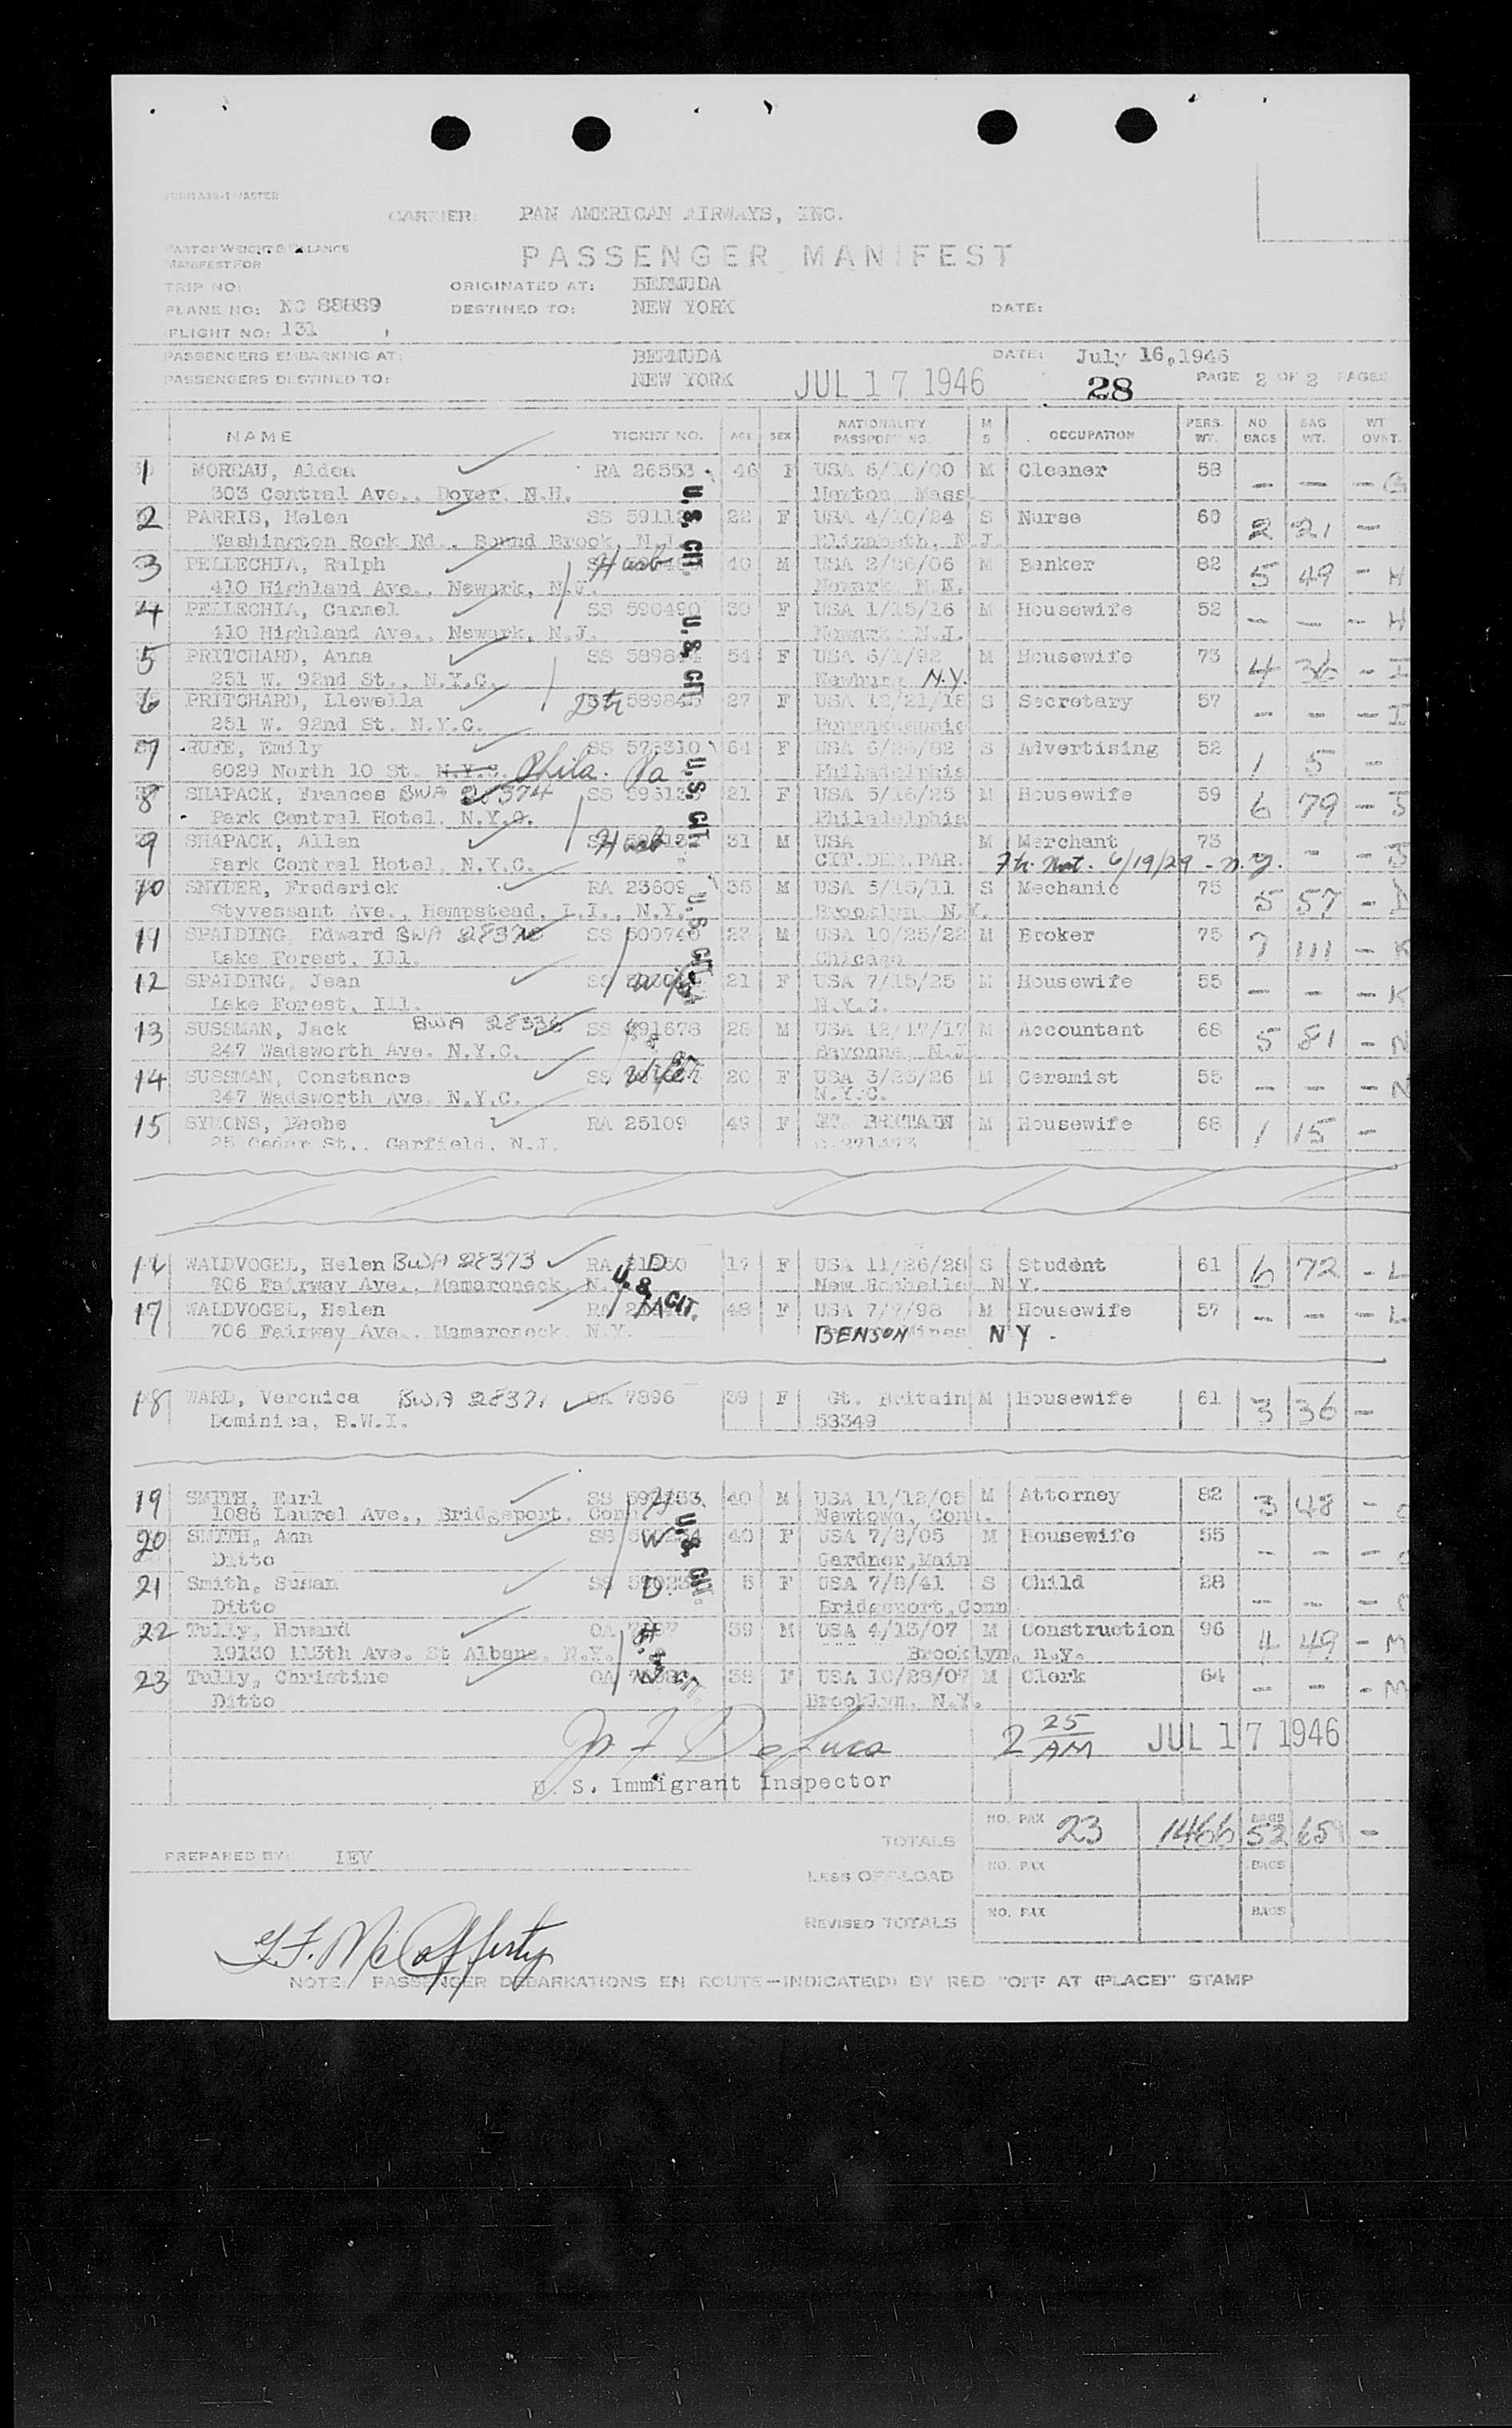 CARRIER: PAN AMERICAN AIRWAYS, INC.
PART OF WEIGHT & BALANCE
MANIFEST FOR
PASSENGER MANIFEST
TRIP NO: ORIGINATED AT: BERMUDA
PLANE NO: NC 88889 DESTINED TO: NEW YORK DATE:
FLIGHT NO: 131
PASSENGERS EMBARKING AT: BERMUDA DATE: July 16, 1946
PASSENGERS DESTINED TO: NEW YORK JUL 17 1946 28 PAGE 2 OF 2 PAGES
NAME TICKET NO. AGE SEX NATIONALITY PASSPORT NO. M S OCCUPATION PERS. WT. NO. BAGS BAG WT. WT OVNT.
1 MOREAU, Aldea RA 26553 46 F USA 6/10/00 M Cleaner 58 - - - G
303 Central Ave., Dover, N.H. Mass.
2 PARRIS, Helen SS 22 F USA 4/10/24 S Nurse 60 2 21 -
Washington Rock Rd., Bound Brook, N.J. Elizabeth, N.J.
3 PELLECHIA, Ralph Husb 40 M USA 2/26/06 M Banker 82 5 49 - H
410 Highland Ave., Newark, N.J. Newark
4 PELLECHIA, Carmel SS 590490 30 F USA 1/15/16 M Housewife 52 - - - H
410 Highland Ave., Newark, N.J. Newark, N.J.
5 PRITCHARD, Anna SS 54 F USA 6/1/92 M Housewife 73 4 36 - I
251 W. 92nd St., N.Y.C. Newburg N.Y.
6 PRITCHARD, Llewella Dtr 27 F USA 12/21/18 S Secretary 57 - - - I
251 W. 92nd St. N.Y.C. Poughkeepsie
7 RUFE, Emily SS 573310 64 F USA 6/26/82 S Advertising 52 1 5 -
6029 North 10 St. N.Y.C. Phila. Pa Philadelphia
8 SHAPACK, Frances BWA 28374 SS 21 F USA 5/16/25 M Housewife 59 6 79 - J
Park Central Hotel, N.Y.C. Philadelphia
9 SHAPACK, Allen Husb 31 M USA M Merchant 73 - - - J
Park Central Hotel, N.Y.C. CIT.DER.PAR. Fh. Nat. 6/19/29 - N.Y.
10 SNYDER, Frederick RA 23609 35 M USA 3/15/11 S Mechanic 75 5 57 -
Styvessant Ave., Hempstead, L.I., N.Y. Brooklyn, N.Y.
11 SPALDING, Edward BWA SS 23 M USA 10/25/22 M Broker 75 7 111 - K
Lake Forest, Ill. Chicago
12 SPALDING, Jean SS Wife 21 F USA 7/15/25 M Housewife 55 - - - K
Lake Forest, Ill. N.Y.C.
13 SUSSMAN, Jack BWA 28336 SS 591678 28 M USA 12/17/17 M Accountant 68 5 81 - N
247 Wadsworth Ave. N.Y.C. Bayonne, N.J.
14 SUSSMAN, Constance SS Wife 20 F USA 3/23/26 M Ceramist 55 - - - N
247 Wadsworth Ave. N.Y.C. N.Y.C.
15 SYMONS, Phobe RA 25109 49 F GT. BRITAIN M Housewife 68 1 15 -
25 Cedar St., Garfield, N.J.
16 WALDVOGEL, Helen BWA 28373 RA D 17 F USA 11/26/28 S Student 61 6 72 - L
706 Fairway Ave., Mamaroneck, N.Y. New Rochelle N.Y.
17 WALDVOGEL, Helen 48 F USA 7/7/98 M Housewife 57 - - - L
706 Fairway Ave., Mamaroneck N.Y. BENSON Mines N Y.
18 WARD, Veronica BWA 28371 OA 7896 39 F Gt. Britain M Housewife 61 3 36 -
Dominica, B.W.I. 53349
19 SMITH, Earl SS H 40 M USA 11/12/05 M Attorney 82 3 48 - O
1086 Laurel Ave., Bridgeport, Conn. Newtown, Conn.
20 SMITH, Ann SS W 40 F USA 7/8/05 M Housewife 55 - - - O
Ditto Gardner, Main
21 Smith, Susan SS D 5 F USA 7/8/41 S Child 28 - - - O
Ditto Bridgeport, Conn
22 Tully, Howard OA H 39 M USA 4/13/07 M Construction 96 4 49 - M
19130 113th Ave. St Albans, N.Y. Brooklyn, n.y.
23 Tully, Christine OA W 38 F USA 10/28/07 M Clerk 64 - - - M
Ditto Brooklyn, N.Y.
U.S. CIT.
U.S. CIT.
U.S. CIT.
U.S. CIT.
U.S. CIT.
U.S. CIT.
U.S. CIT.
2 25 AM JUL 17 1946
U. S. Immigrant Inspector
TOTALS NO. PAX 23 1466 BAGS 52 -
PREPARED BY: LEV
LESS OFF-LOAD NO. PAX BAGS
REVISED TOTALS NO. PAX BAGS
McCafferty
NOTE: PASSENGER DEBARKATIONS EN ROUTE—INDICATE(D) BY RED "OFF AT (PLACE)" STAMP